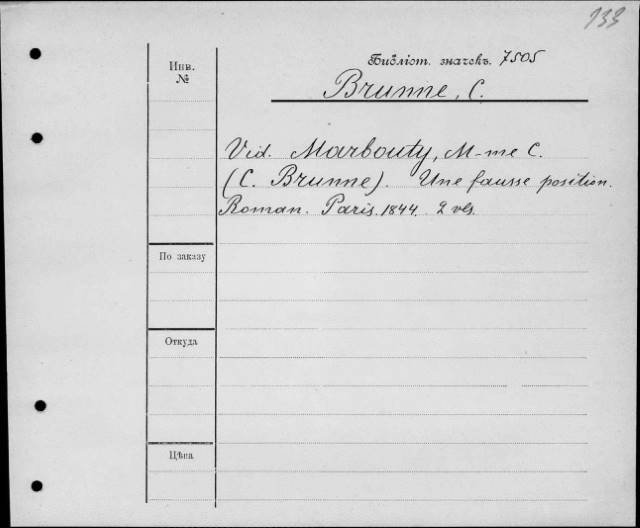 133
Инв.
№
Библіот. значекъ. 7505
Brunne, C.
Vid. Marbouty, M-me C.
(C. Brunne). Une fausse position.
Roman. Paris. 1844. 2 vls.
По заказу
Откуда
Цѣна